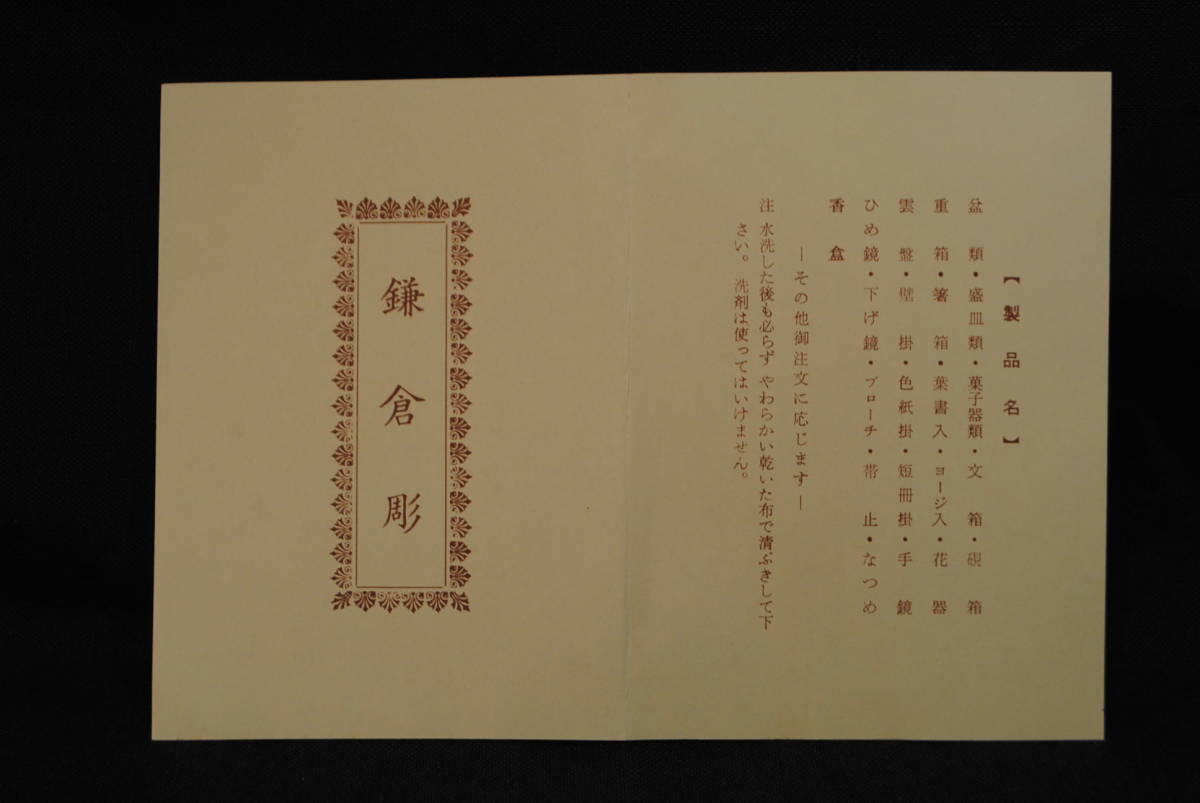 【製品名】
盆類・盛皿類・菓子器類・文箱・硯箱
重箱・箸箱・葉書入・ヨージ入・花器
雲盤・壁掛・色紙掛・短冊掛・手鏡
ひめ鏡・下げ鏡・ブローチ・帯止・なつめ
香盒
―その他御注文に応じます―
注 水洗した後も必らず やわらかい乾いた布で清ぶきして下
さい。 洗剤は使ってはいけません。
鎌倉彫